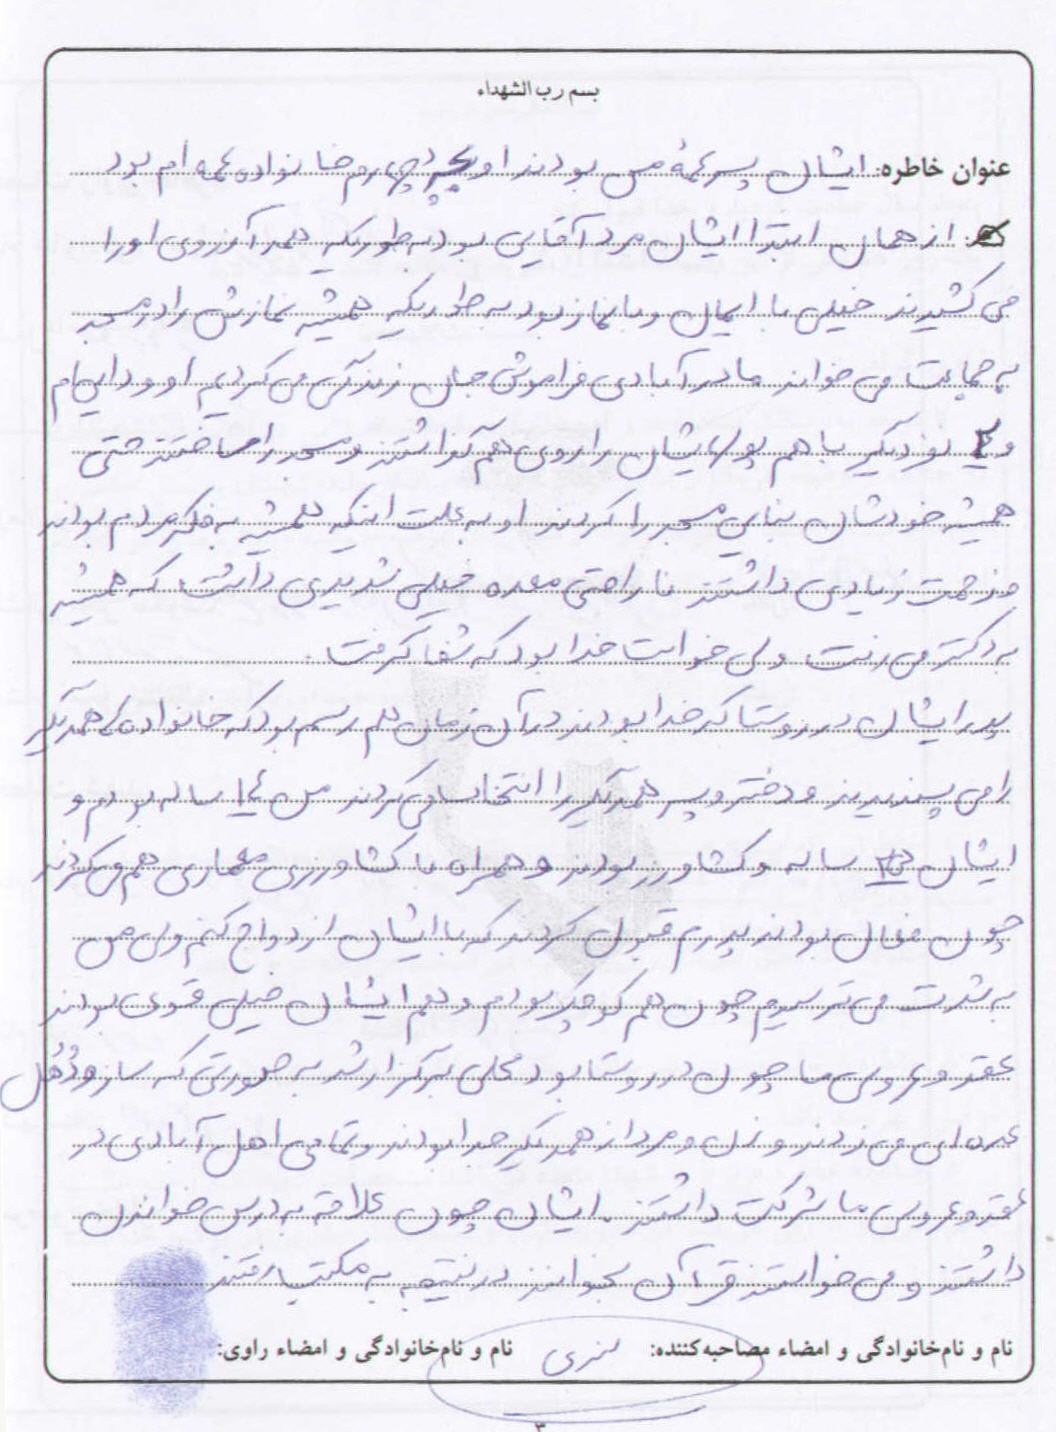 بسم رب الشهداء
عنوان خاطره: ایشان پسر عمهٔ من بودند او بچه چهارم خانواده عمه ام بود
از همان ابتدا ایشان مرد آقایی بود به طوریکه همه آرزوی او را
می کشیدند خیلی با ایمان و با نماز بود به طوریکه همیشه نمازش را در مسجد
به جماعت می خواند ما در آبادی فراموش جان زندگی می کردیم او و دایی ام
و ۲ نفر دیگر با هم پولهایشان را روی هم گذاشتند و مسجد را ساختند حتی
همیشه خودشان بنایی مسجد را کردند او به علت اینکه همیشه به فکر مردم بودند
و زحمت زیادی داشتند ناراحتی معده خیلی شدیدی داشت که همیشه
به دکتر می رفت ولی خواست خدا بود که شفا گرفت.
پدر ایشان در روستا کدخدا بودند در آن زمان هم رسم بود که خانواده ها همدیگر
را می پسندیدند و دختر و پسر همدیگر را انتخاب می کردند من ۱۴ ساله بودم و
ایشان ساله و کشاورز بودند و همراه با کشاورزی معماری هم می کردند
چون فعال بودند پدرم قبول کردند که با ایشان ازدواج کنم ولی من
به شدت می ترسیدم چون هم کوچک بودم و هم ایشان خیلی قوی بودند
عقد و عروسی ما چون در روستا بود محلی برگزار شد به صورتی که ساز و دُهُل
عده ای می زدند و زن و مرد از همدیگر جدا بودند و تمامی اهل آبادی در
عقد و عروسی ما شرکت داشتند. ایشان چون علاقه به درس خواندن
داشتند و می خواستند قرآن بخوانند در نتیجه به مکتب رفتند
نام و نام‌خانوادگی و امضاء مصاحبه‌کننده:
نام و نام‌خانوادگی و امضاء راوی:
۳